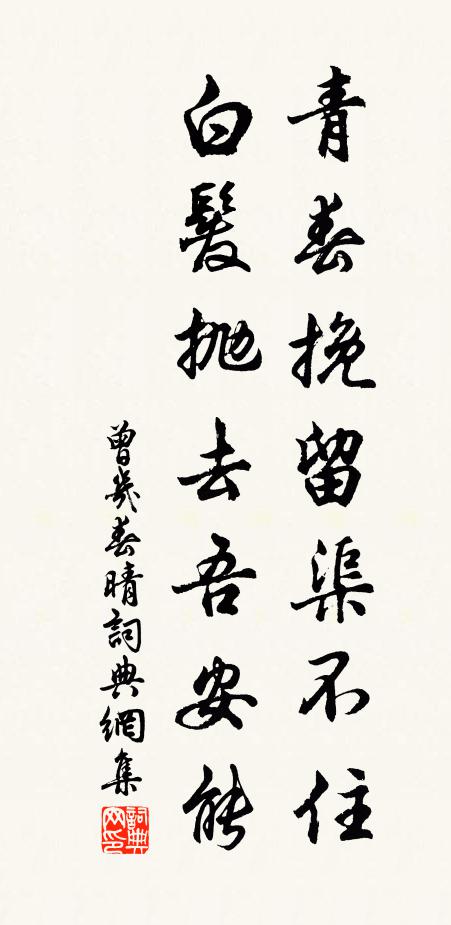 青春挽留渠不住
白髮抛去吾安能
曾幾春晴詞典網集
詞典
网印